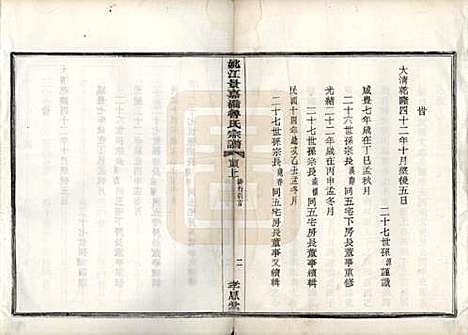 旹
大清乾隆四十二年十月縠後五日
二十七世孫
謹識
咸豐七年歲在丁巳孟秋月
二十六世孫宗長
同五宅下房長董事重修
光緒二十二年歲在丙申孟冬月
二十七世孫宗長
同五宅房長董事續輯
民國十四年歲次乙丑孟冬月
二十七世孫宗長
同五宅房長董事又續輯
姚江景嘉橋魯氏宗譜
首上
二
孝思堂